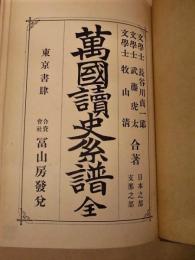 文學士 長谷川貞一郎
文學士 武藤虎太
文學士 牧山清
合著
日本之部
支那之部
萬國讀史系譜 全
東京書肆
合資會社 冨山房發兌